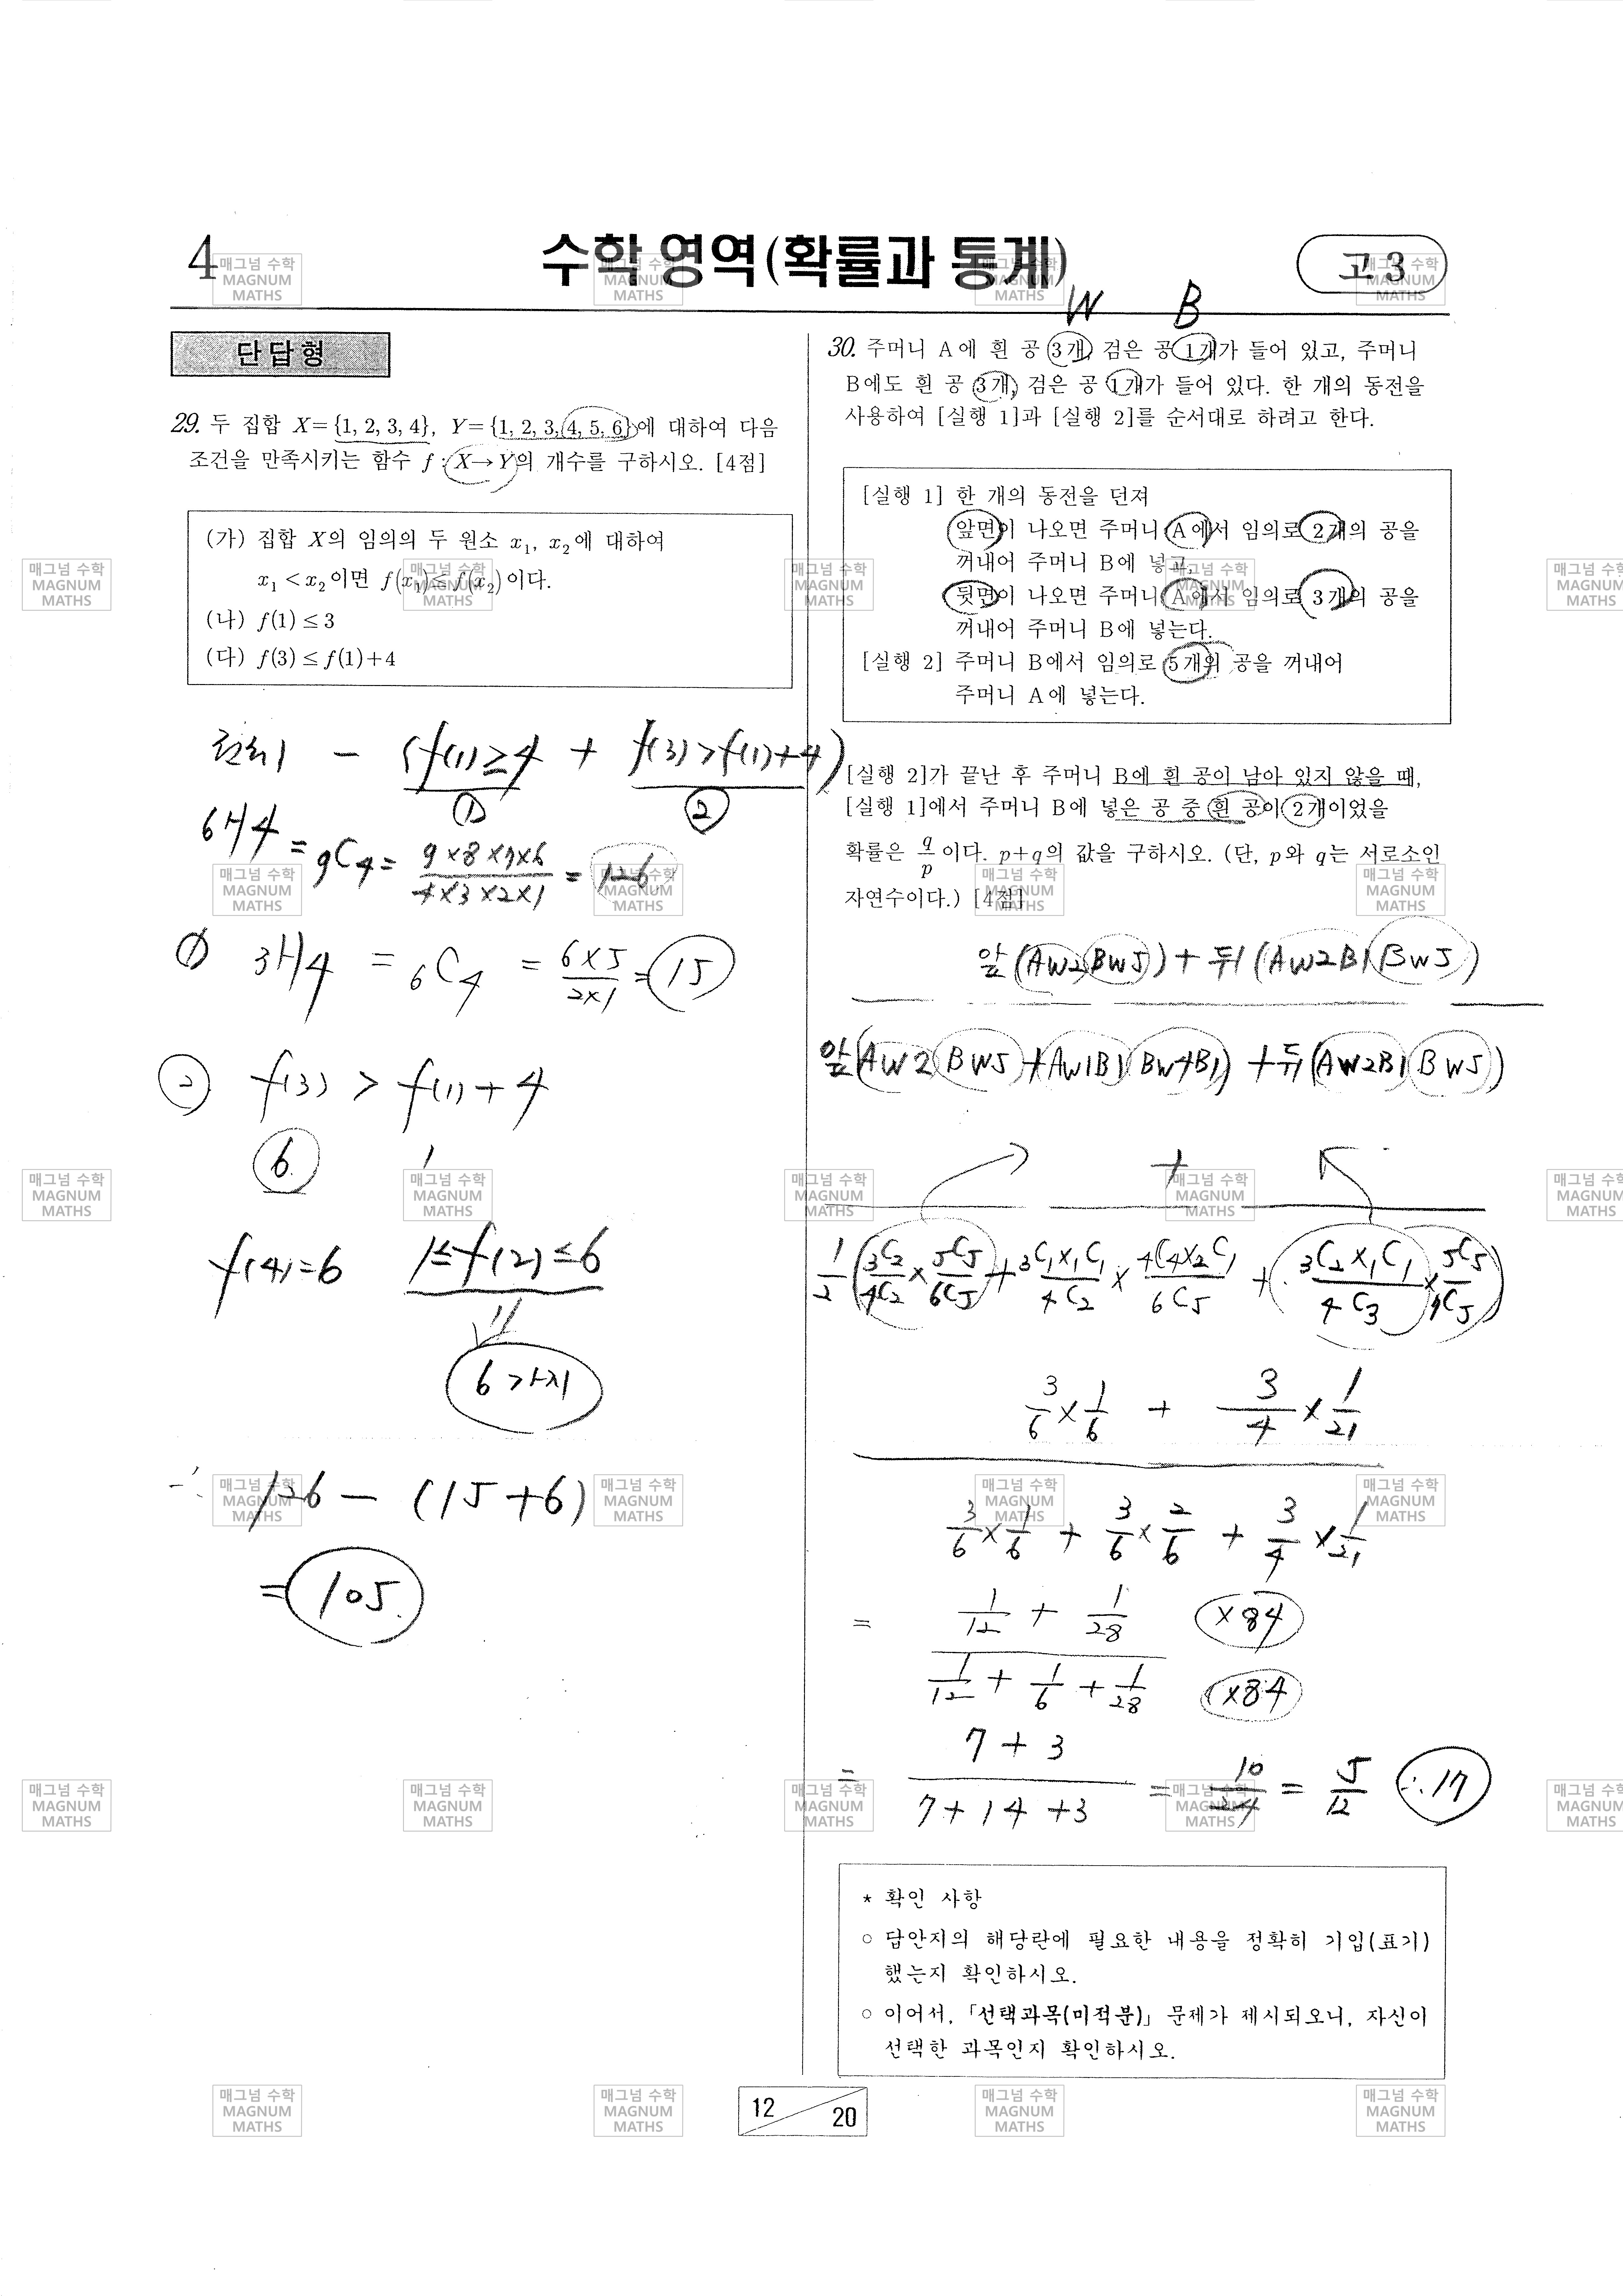 4
수학 영역(확률과 통계)
고3
W B
단답형
29. 두 집합 X={1, 2, 3, 4}, Y={1, 2, 3, 4, 5, 6}에 대하여 다음
조건을 만족시키는 함수 f : X→Y의 개수를 구하시오. [4점]
(가) 집합 X의 임의의 두 원소 x₁, x₂에 대하여
x₁ < x₂이면 f(x₁) ≤ f(x₂)이다.
(나) f(1) ≤ 3
(다) f(3) ≤ f(1)+4
전체 - (f(1)≥4 + f(3)>f(1)+4)
① ②
₆H₄ = ₉C₄ = (9×8×7×6)/(4×3×2×1) = 126
① ₃H₄ = ₆C₄ = (6×5)/(2×1) = 15
② f(3) > f(1)+4
6 1
f(4)=6 1≤f(2)≤6
6가지
∴ 126 - (15+6)
= 105.
30. 주머니 A에 흰 공 3개, 검은 공 1개가 들어 있고, 주머니
B에도 흰 공 3개, 검은 공 1개가 들어 있다. 한 개의 동전을
사용하여 [실행 1]과 [실행 2]를 순서대로 하려고 한다.
[실행 1] 한 개의 동전을 던져
앞면이 나오면 주머니 A에서 임의로 2개의 공을
꺼내어 주머니 B에 넣고,
뒷면이 나오면 주머니 A에서 임의로 3개의 공을
꺼내어 주머니 B에 넣는다.
[실행 2] 주머니 B에서 임의로 5개의 공을 꺼내어
주머니 A에 넣는다.
[실행 2]가 끝난 후 주머니 B에 흰 공이 남아 있지 않을 때,
[실행 1]에서 주머니 B에 넣은 공 중 흰 공이 2개이었을
확률은 q/p이다. p+q의 값을 구하시오. (단, p와 q는 서로소인
자연수이다.) [4점]
앞(AW2 BW5) + 뒤(AW2B1 BW5)
앞(AW2 BW5 + AW1B1 BW4B1) + 뒤(AW2B1 BW5)
+
1/2 (₃C₂/₄C₂ × ₅C₅/₆C₅ + ₃C₁×₁C₁/₄C₂ × ₄C₄×₂C₁/₆C₅ + ₃C₂×₁C₁/₄C₃ × ₅C₅/₇C₅)
3/6 × 1/6 + 3/4 × 1/21
3/6 × 1/6 + 3/6 × 2/6 + 3/4 × 1/21
= 1/12 + 1/28 ×84
1/12 + 1/6 + 1/28 ×84
= (7+3)/(7+14+3) = 10/24 = 5/12 ∴ 17
* 확인 사항
○ 답안지의 해당란에 필요한 내용을 정확히 기입(표기)
했는지 확인하시오.
○ 이어서, 「선택과목(미적분)」 문제가 제시되오니, 자신이
선택한 과목인지 확인하시오.
12 20
매그넘 수학
MAGNUM
MATHS